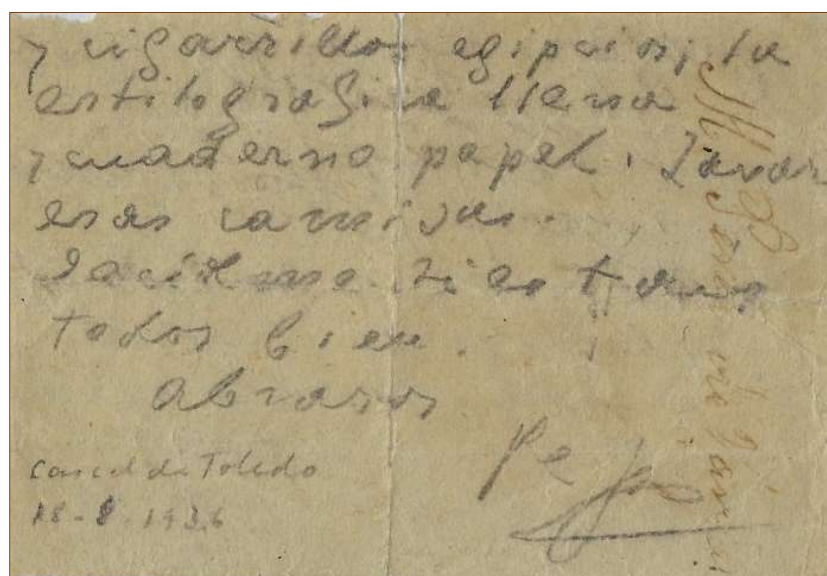 y cigarrillos egipcios, la
estilografica llena
y cuaderno papel. Lavar
esas camisas.
si estais
todos bien.
abrazos
Pe
Carcel de Toledo
18-8-1936